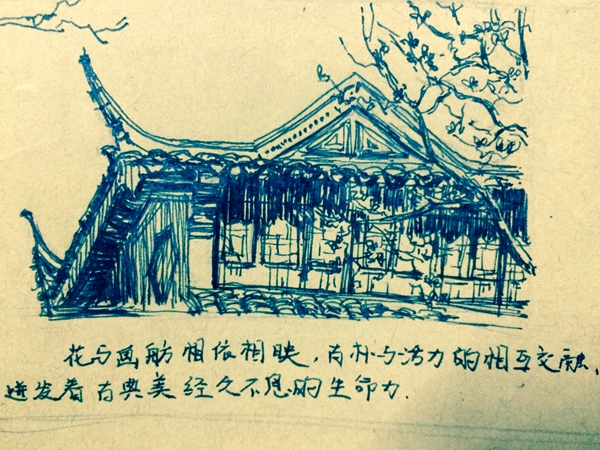 花与画舫相依相映，古朴与活力的相互交融，
迸发着古典美经久不息的生命力.